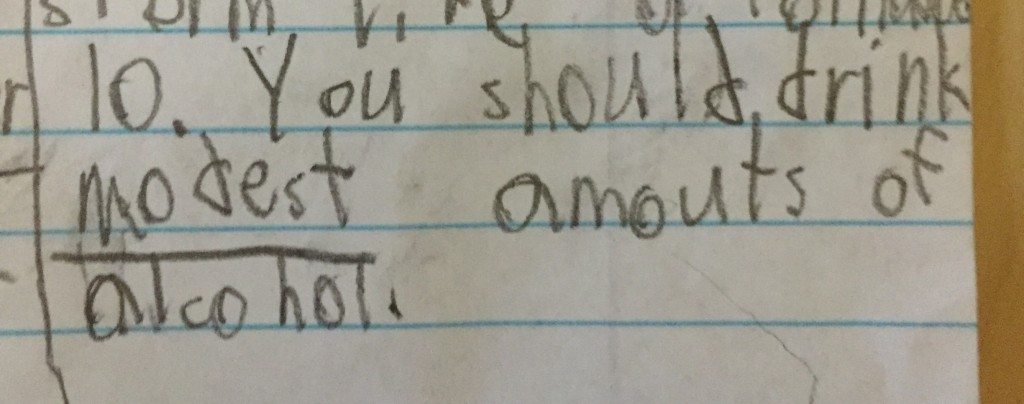 10. You should drink
modest amouts of
alcohol.